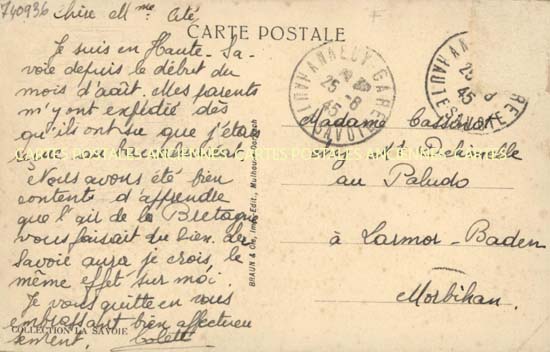 740936
Chère Mme
CARTE POSTALE
Je suis en Haute-Sa-
voie depuis le début du
mois d'août. Mes parents
m'y ont expédié dès
qu'ils ont su que j'étais
CARTES POSTALES ANCIENNES CARTES POSTALES ANCIENNES
Nous avons été bien
contents d'apprendre
que l'air de la Bretagne
vous faisait du bien. La
Savoie aura je crois, le
même effet sur moi.
Je vous quitte en vous
embrassant bien affectueu
sement. Colett
COLLECTION LA SAVOIE
BRAUN & Cie, Imp.-Edit., Mulhouse-Dornach
ANNECY GARE
25-8
45
HAUTE SAVOIE
25-8
45
HAUTE SAVOIE
Madame
chez Mr
au Paludo
à Larmor-Baden
Morbihan.